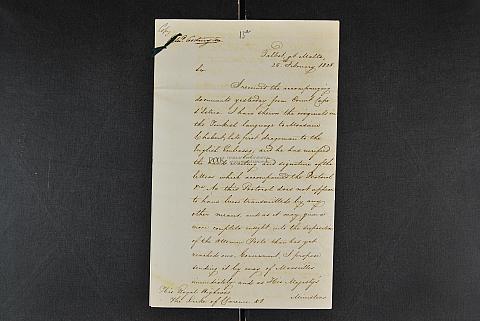 Copy
13th
Talbot, off Malta,
25 February, 1828
Sir
I received the accompanying
documents yesterday from Count Capo
d'Istria. I have shewn the originals in
the Turkish language to Monsieur
Chabert, late first dragoman to the
English Embassy, and he has verified
the hand writing and signature of the
letters which accompanied the Protocol
&ca As this Protocol does not appear
to have been transmitted by any
other means, and as it may give a
more complete insight into the disposition
of the Ottoman Porte than has yet
reached our Government, I propose
sending it by way of Marseilles
immediately and as His Majesty's
Ministers
His Royal Highness
The Duke of Clarence &c